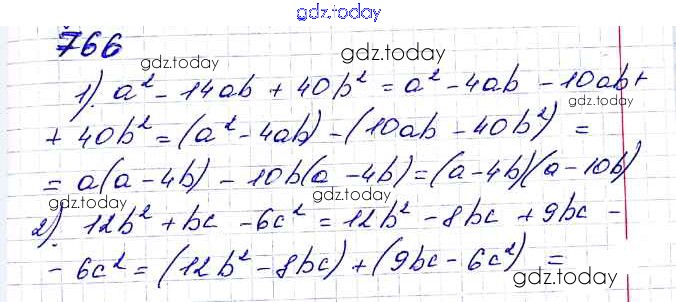 gdz.today
766
gdz.today
gdz.today
1). a² - 14ab + 40b² = a² - 4ab - 10ab +
gdz.today
+ 40b² = (a² - 4ab) - (10ab - 40b²) =
= a(a - 4b) - 10b(a - 4b) = (a - 4b)(a - 10b)
gdz.today
2). 12b² + bc - 6c² = 12b² - 8bc + 9bc -
- 6c² = (12b² - 8bc) + (9bc - 6c²) =
gdz.today